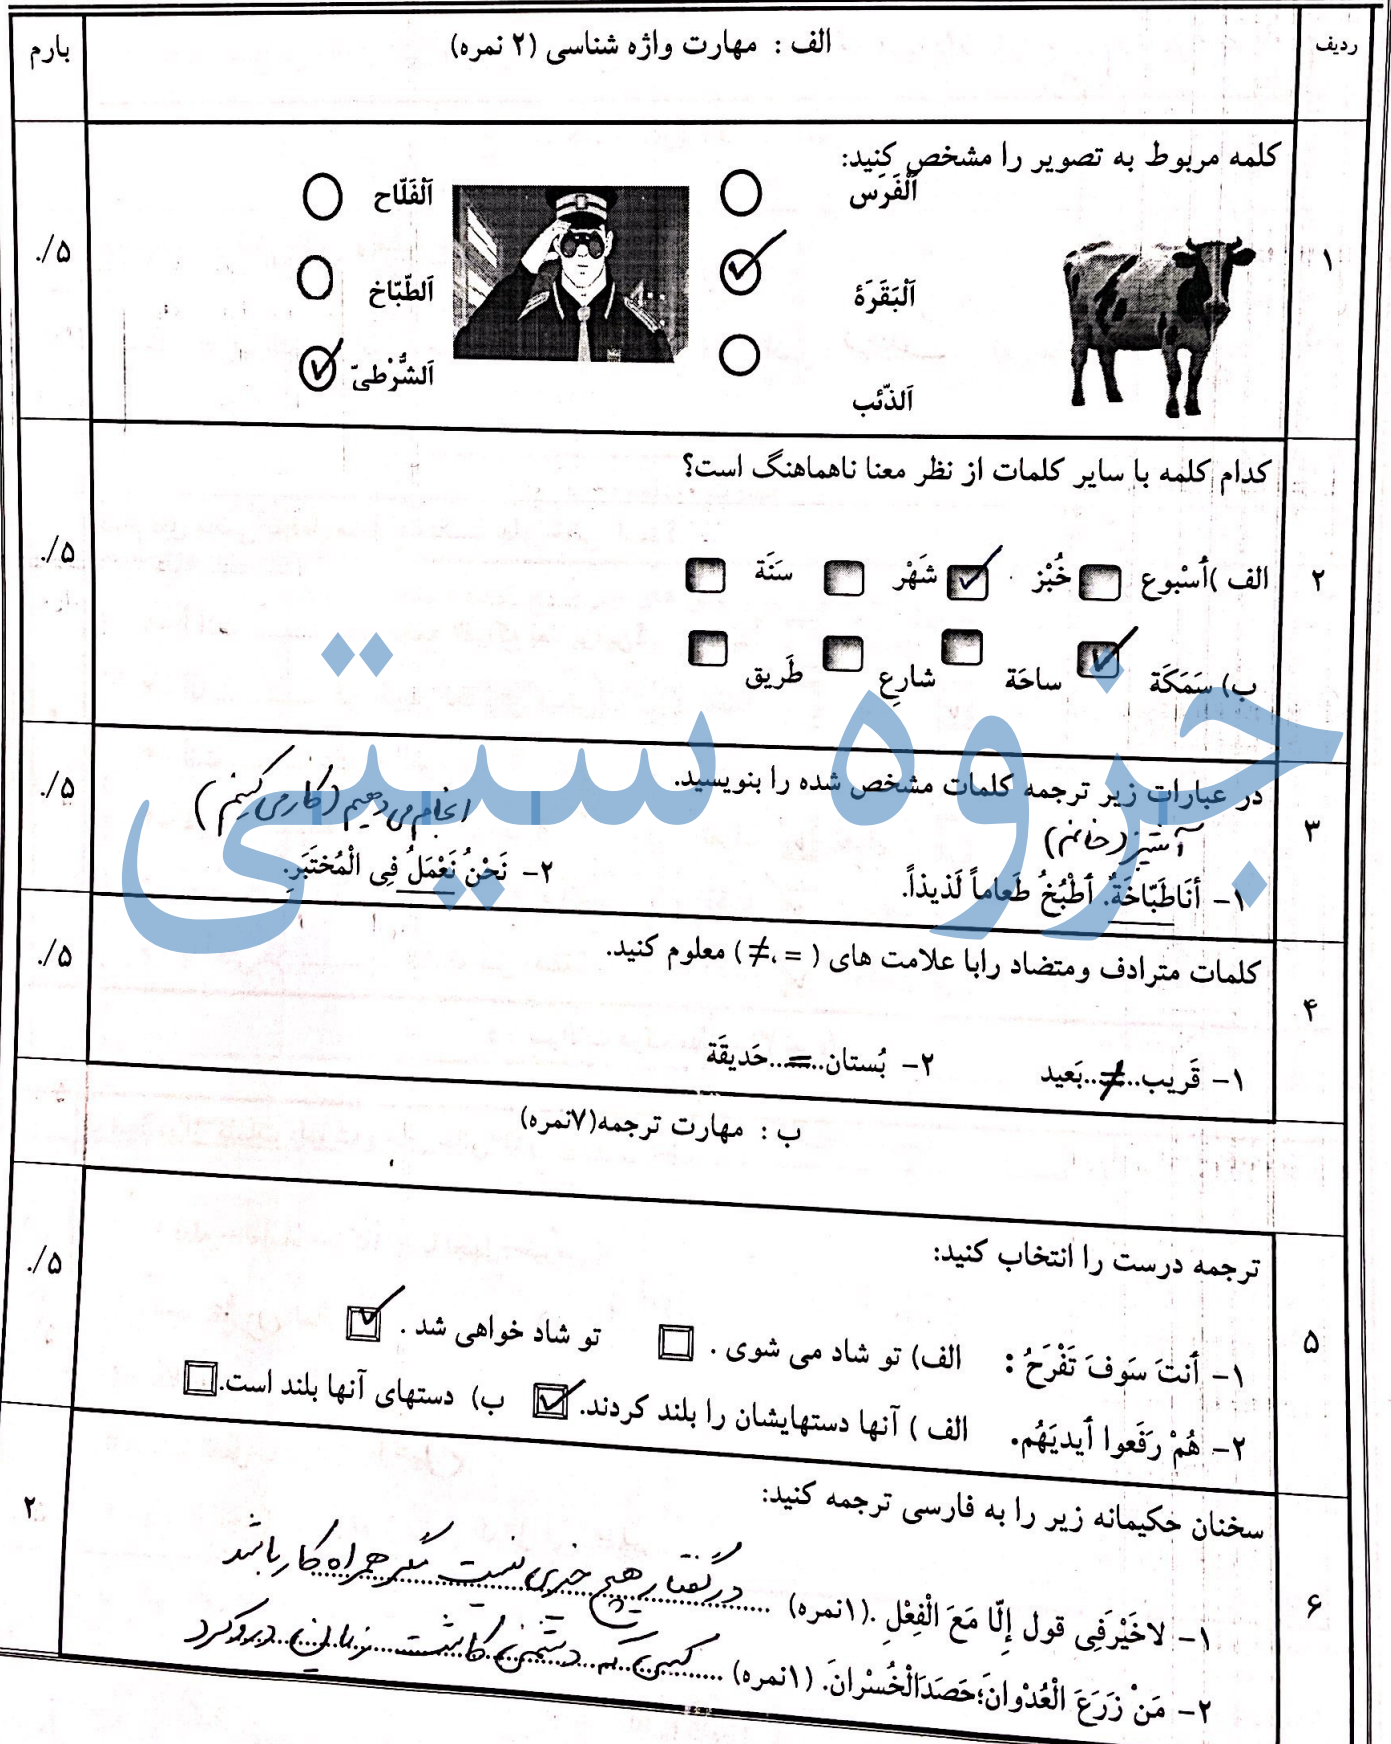 ردیف
الف : مهارت واژه شناسی (۲ نمره)
بارم
۱
کلمه مربوط به تصویر را مشخص کنید:
۵/.
اَلْفَرَس
اَلْبَقَرَة
اَلذّئب
اَلْفَلّاح
اَلطّبّاخ
اَلشُّرْطیّ
۲
کدام کلمه با سایر کلمات از نظر معنا ناهماهنگ است؟
۵/.
الف )اُسْبوع خُبْز شَهْر سَنَة
ب) سَمَکَة ساحَة شارِع طَریق
۳
در عبارات زیر ترجمه کلمات مشخص شده را بنویسید.
۵/.
آشپز (خانم)
انجام می دهیم (کار می کنیم)
۱- أنَاطَبّاخَةٌ. أطْبُخُ طَعاماً لَذیذاً.
۲- نَحْنُ نَعْمَلُ فِی الْمُختَبَرِ.
۴
کلمات مترادف ومتضاد رابا علامت های ( = ،≠ ) معلوم کنید.
۵/.
۱- قَریب..≠..بَعید
۲- بُستان..=..حَدیقَة
ب : مهارت ترجمه(۷نمره)
۵
ترجمه درست را انتخاب کنید:
۵/.
۱- أنتَ سَوفَ تَفْرَحُ : الف) تو شاد می شوی . تو شاد خواهی شد .
۲- هُمْ رَفَعوا أیدیَهُم. الف ) آنها دستهایشان را بلند کردند. ب) دستهای آنها بلند است.
۶
سخنان حکیمانه زیر را به فارسی ترجمه کنید:
۲
۱- لاخَیْرَفِی قول إلّا مَعَ الْفِعْلِ .(۱نمره) در گفتار هیچ خیری نیست مگر همراه کار باشد
۲- مَنْ زَرَعَ الْعُدْوانَ؛حَصَدَالْخُسْرانَ. (۱نمره) کسی که دشمنی کاشت زیان درو کرد
جزوه سیتی